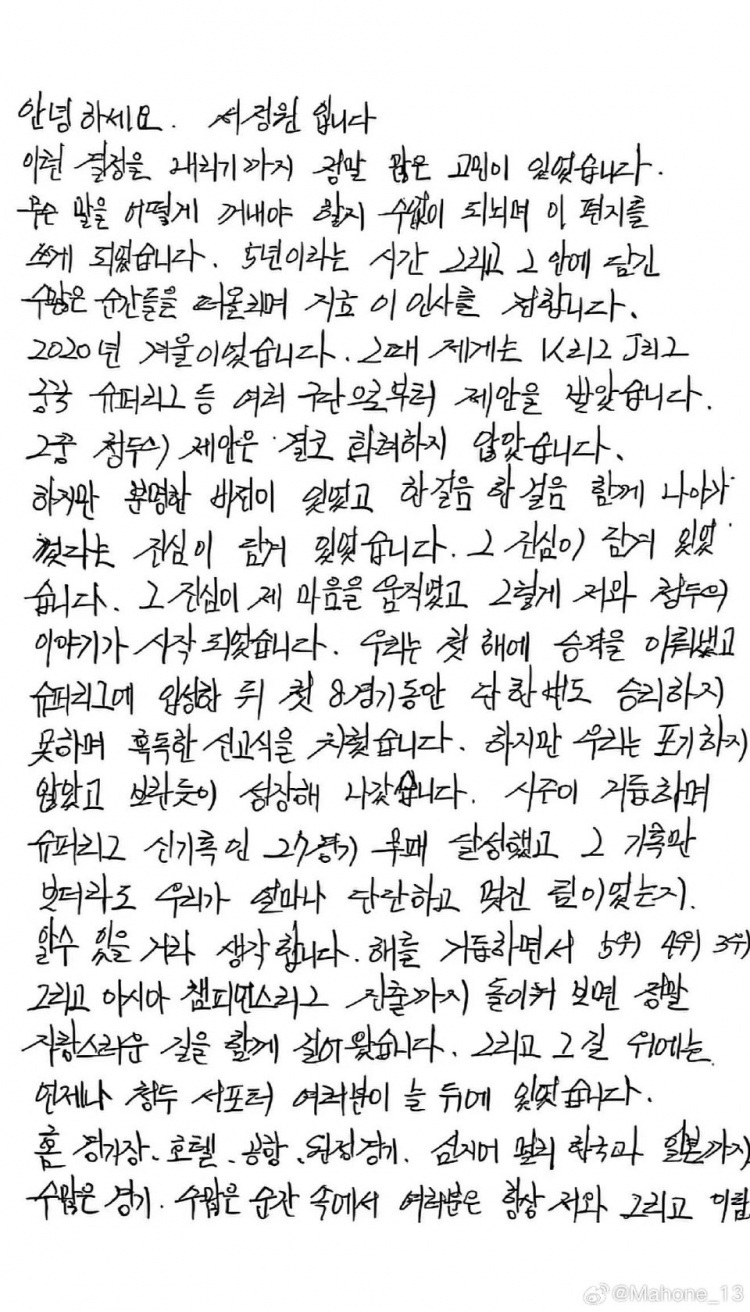 안녕하세요. 서정원 입니다
이런 결정을 내리기까지 정말 많은 고민이 있었습니다.
무슨 말을 어떻게 꺼내야 할지 수없이 되뇌며 이 편지를
쓰게 되었습니다. 5년이라는 시간 그리고 그 안에 담긴
수많은 순간들을 떠올리며 이 인사를 전합니다.
2020년 겨울이었습니다. 그때 제게는 K리그 J리그
중국 슈퍼리그 등 여러 구단으로부터 제안을 받았습니다.
그중 청두의 제안은 결코 화려하지 않았습니다.
하지만 분명한 비전이 있었고 한걸음 한걸음 함께 나아가
겠다는 진심이 담겨 있었습니다. 그 진심이 담겨 있었
습니다. 그 진심이 제 마음을 움직였고 그렇게 저와 청두의
이야기가 시작 되었습니다. 우리는 첫 해에 승격을 이뤄냈고
슈퍼리그에 입성한 뒤 첫 8경기동안 단 한번도 승리하지
못하며 혹독한 신고식을 치렀습니다. 하지만 우리는 포기하지
않았고 보란듯이 성장해 나갔습니다. 시즌이 거듭하며
슈퍼리그 신기록인 27경기 무패 달성했고 그 기록만
보더라도 우리가 얼마나 단단하고 멋진 팀이었는지.
알수 있을 거라 생각합니다. 해를 거듭하면서 5위 4위 3위
그리고 아시아 챔피언스리그 진출까지 돌이켜 보면 정말
자랑스러운 길을 함께 걸어왔습니다. 그리고 그 길 위에는
언제나 청두 서포터 여러분이 늘 뒤에 있었습니다.
홈 경기장、호텔、공항、원정경기. 심지어 멀리 한국과 일본까지
수많은 경기. 수많은 순간 속에서 여러분은 항상 저와 그리고 이팀
@Mahone_13